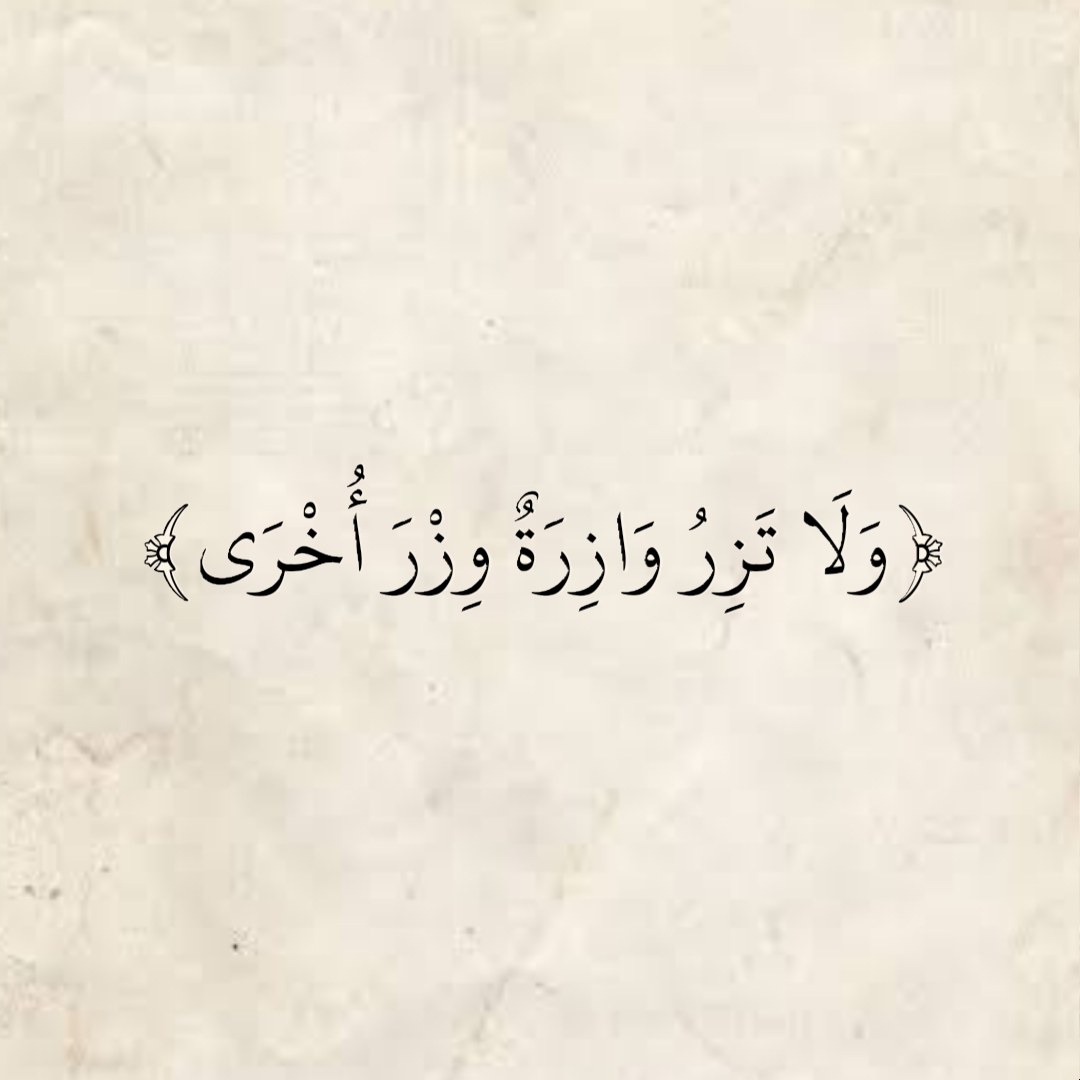 ﴿وَلَا تَزِرُ وَازِرَةٌ وِزْرَ أُخْرَى﴾